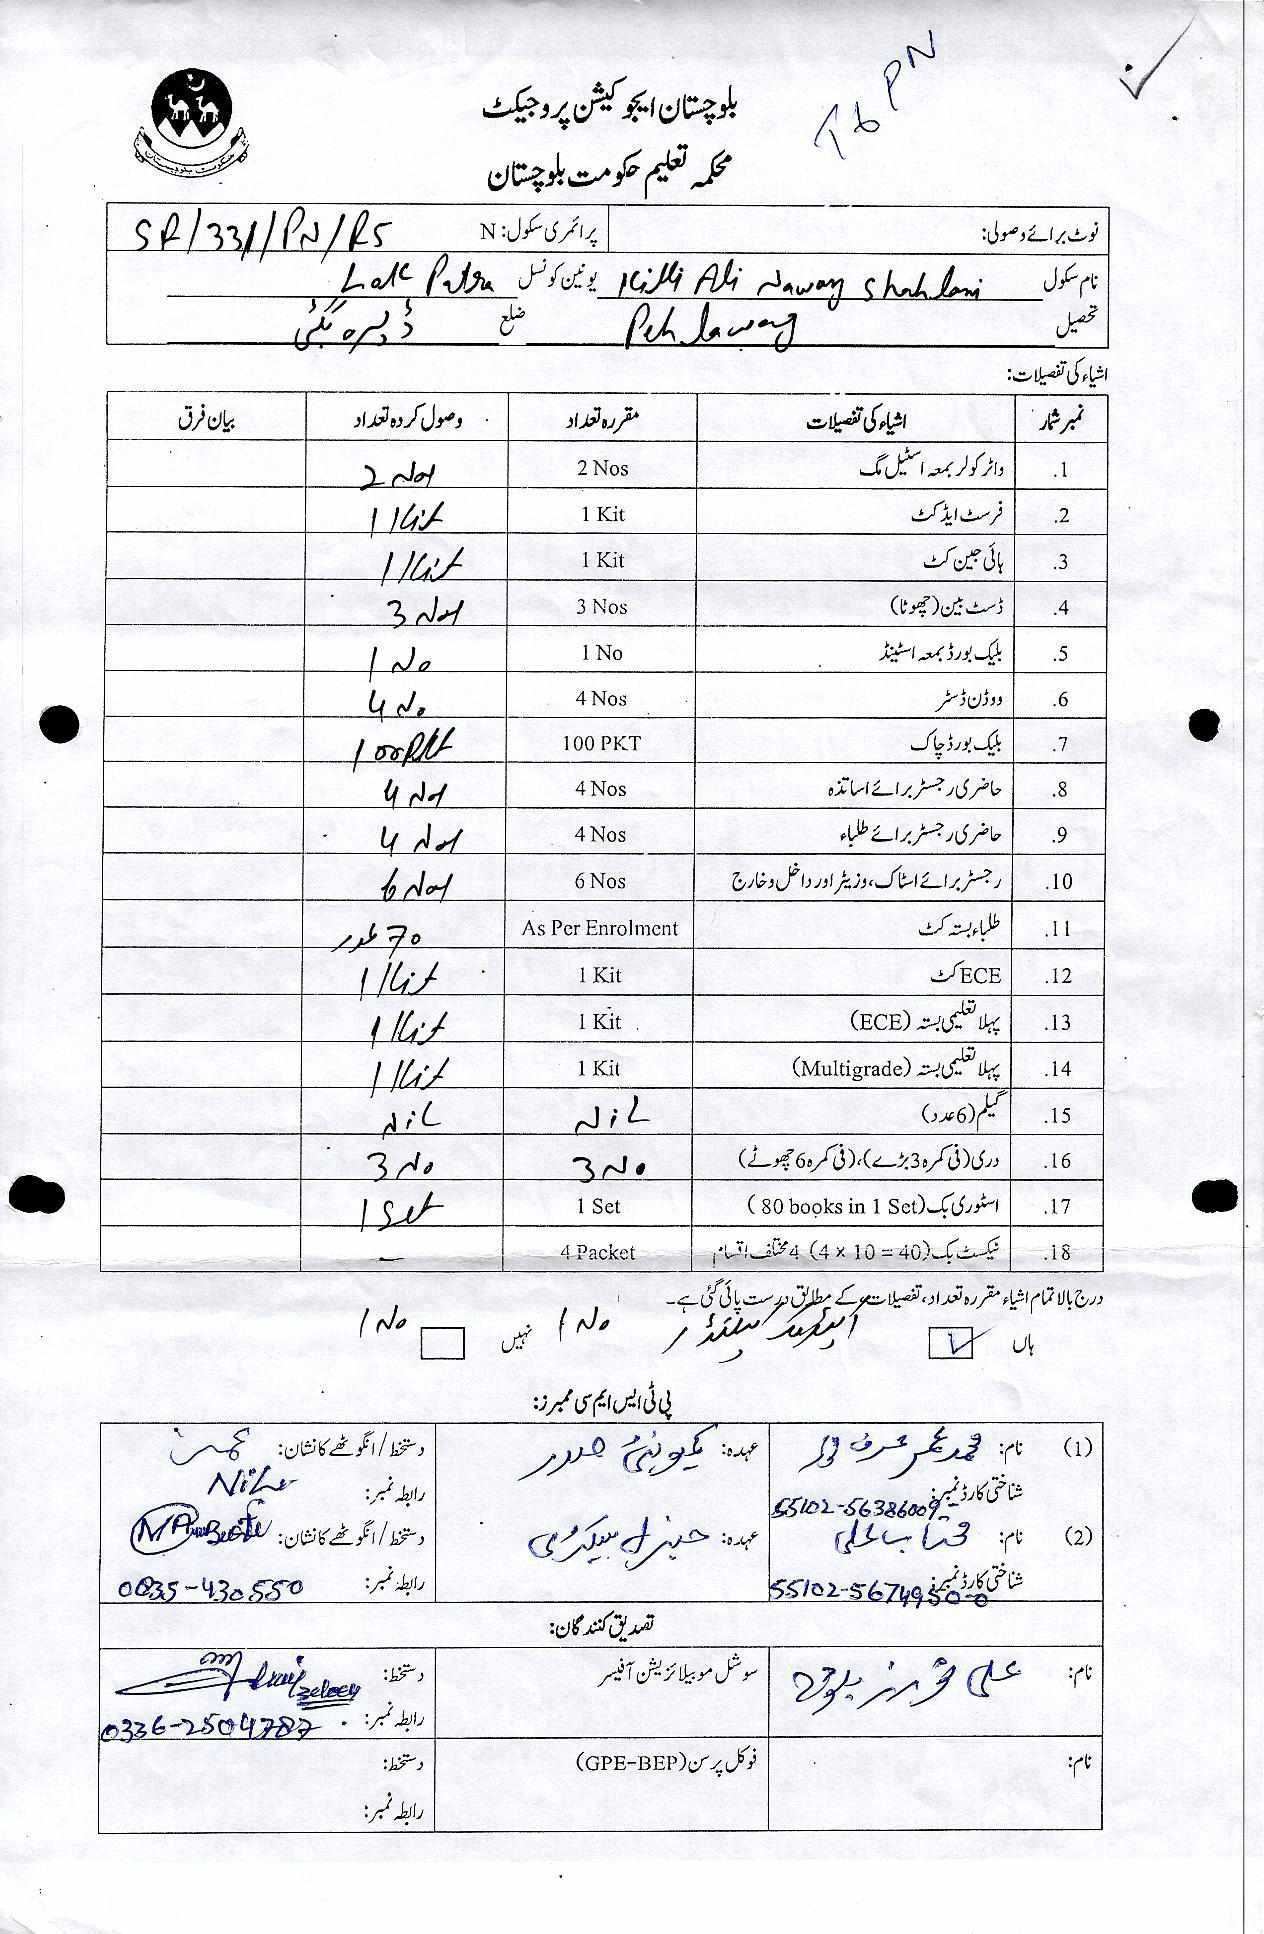 Tb PN
بلوچستان ایجوکیشن پروجیکٹ
محکمہ تعلیم حکومت بلوچستان
حکومت بلوچستان
نوٹ برائے وصولی: پرائمری سکول: N SR/331/PN/RS
نام سکول Killi Ali Nawaz Shahlani یونین کونسل Lak Patra
تحصیل Pehlawag ضلع ڈیرہ بگٹی
اشیاء کی تفصیلات:
نمبر شمار اشیاء کی تفصیلات مقررہ تعداد وصول کردہ تعداد بیان فرق
1. واٹر کولر بمعہ اسٹیل مگ 2 Nos 2 Nos
2. فرسٹ ایڈ کٹ 1 Kit 1 Kit
3. ہائی جین کٹ 1 Kit 1 Kit
4. ڈسٹ بین (چھوٹا) 3 Nos 3 Nos
5. بلیک بورڈ بمعہ اسٹینڈ 1 No 1 No
6. ووڈن ڈسٹر 4 Nos 4 No
7. بلیک بورڈ چاک 100 PKT 100 PKt
8. حاضری رجسٹر برائے اساتذہ 4 Nos 4 Nos
9. حاضری رجسٹر برائے طلباء 4 Nos 4 Nos
10. رجسٹر برائے اسٹاک، وزیٹر اور داخل و خارج 6 Nos 6 Nos
11. طلباء بستہ کٹ As Per Enrolment 70 عدد
12. ECE کٹ 1 Kit 1 Kit
13. پہلا تعلیمی بستہ (ECE) 1 Kit 1 Kit
14. پہلا تعلیمی بستہ (Multigrade) 1 Kit 1 Kit
15. گیلم (6 عدد) NiL NiL
16. دری (فی کمرہ 3 بڑے)، (فی کمرہ 6 چھوٹے) 3 No 3 No
17. اسٹوری بک (80 books in 1 Set) 1 Set 1 Set
18. ٹیکسٹ بک (4 x 10 = 40) 4 مختلف اقسام 4 Packet –
درج بالا تمام اشیاء مقررہ تعداد، تفصیلات کے مطابق درست پائی گئی ہے۔
ہاں 1 No نہیں 1 No
پی ٹی ایس ایم سی ممبرز:
(1) نام: محمد عمر عہدہ: کمیونٹی صدر دستخط / انگوٹھے کا نشان:
شناختی کارڈ نمبر: 55102-56386009 رابطہ نمبر:
(2) نام: عہدہ: جنرل سیکرٹری دستخط / انگوٹھے کا نشان:
شناختی کارڈ نمبر: 55102-5674950-0 رابطہ نمبر: 0835-430550
تصدیق کنندگان:
نام: علی بلوچ سوشل موبیلائزیشن آفیسر دستخط:
رابطہ نمبر: 0336-2504787
نام: فوکل پرسن (GPE-BEP) دستخط:
رابطہ نمبر: